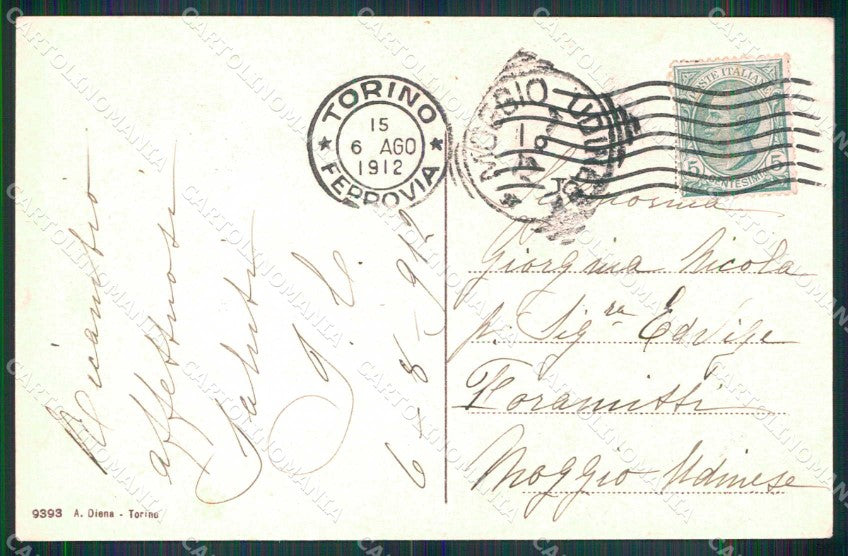 Ricambio
affettuosi
saluti
G. C.
6-8-912
9393 A. Diena - Torino
TORINO
15
6 AGO
1912
FERROVIA
MOGGIO UDINESE
POSTE ITALIANE
5 CENTESIMI 5
Giorgina Nicola
p. Sigra Edvige
Foramitti
Moggio Udinese
CARTOLINOMANIA